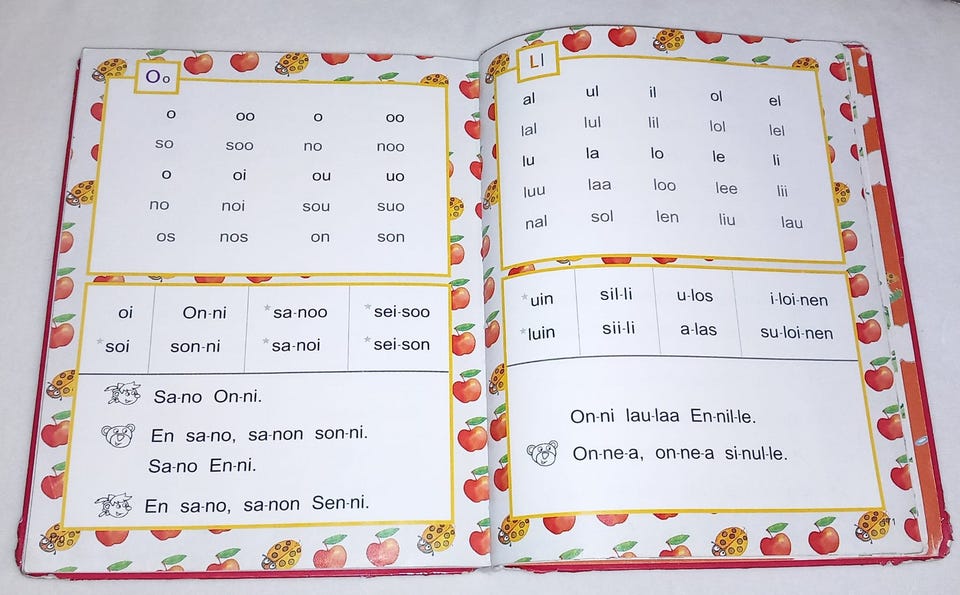 Oo
o oo o oo
so soo no noo
o oi ou uo
no noi sou suo
os nos on son
oi On-ni *sa-noo *sei-soo
*soi son-ni *sa-noi *sei-son
Sa-no On-ni.
En sa-no, sa-non son-ni.
Sa-no En-ni.
En sa-no, sa-non Sen-ni.
Ll
al ul il ol el
lal lul lil lol lel
lu la lo le li
luu laa loo lee lii
nal sol len liu lau
*uin sil-li u-los i-loi-nen
*luin sii-li a-las su-loi-nen
On-ni lau-laa En-nil-le.
On-ne-a, on-ne-a si-nul-le.